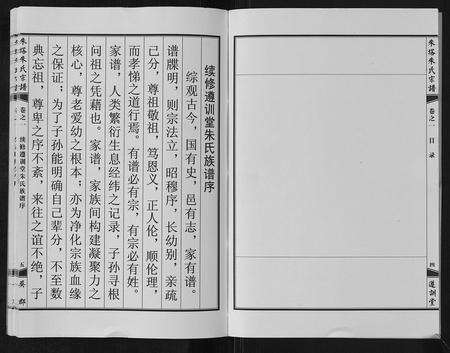 朱塔朱氏宗谱
卷之一
目录
四
遵训堂
续修遵训堂朱氏族谱序
综观古今，国有史，邑有志，家有谱。
谱牒明，则宗法立，昭穆序，长幼别，亲疏
已分，尊祖敬祖，笃恩义，正人伦，顺伦理，
而孝悌之道行焉。有谱必有宗，有宗必有姓。
家谱，人类繁衍生息经纬之记录，子孙寻根
问祖之凭藉也。家谱，家族间构建凝聚力之
核心，尊老爱幼之根本；亦为净化宗族血缘
之保证；为了子孙能明确自己辈分，不至数
典忘祖，尊卑之序不紊，来往之谊不绝，子
朱塔朱氏宗谱
卷之一
续修遵训堂朱氏族谱序
五